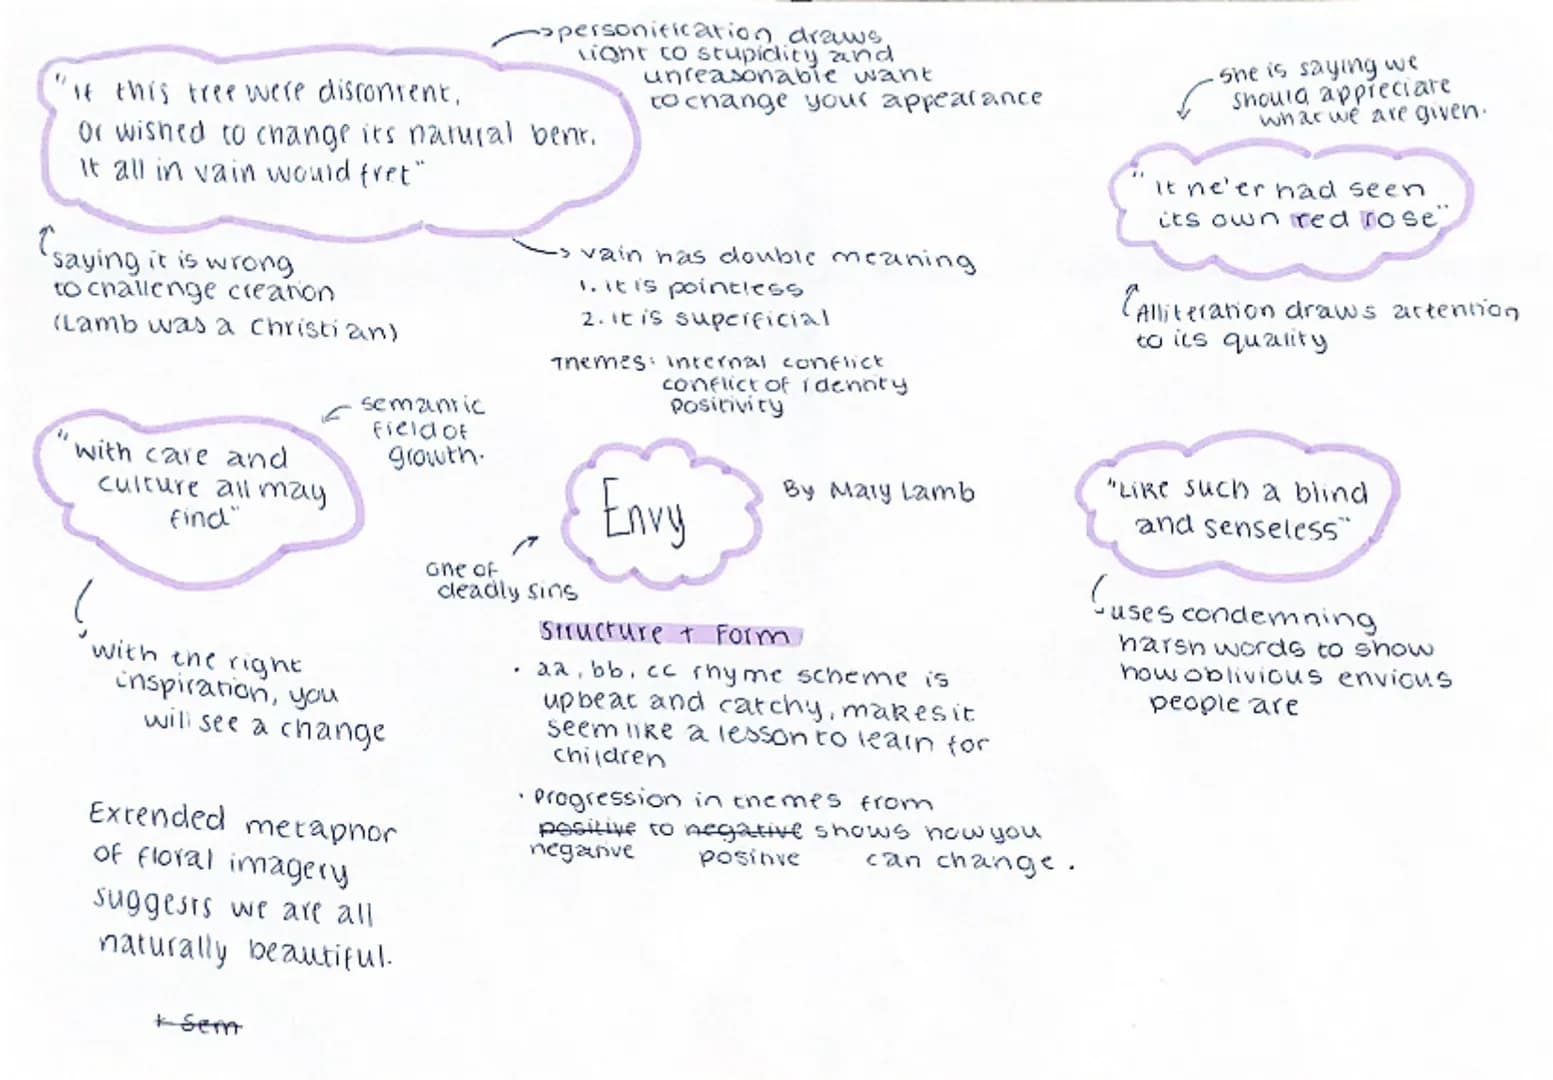 →personification draws
light to stupidity and
unreasonable want
to change your appearance
"if this tree were discontent,
Or wished to change its natural bent.
It all in vain would fret"
saying it is wrong
to challenge creation
(Lamb was a Christian)
→ vain has double meaning
1. it is pointless
2. it is superficial
Themes: internal conflict
conflict of identity
positivity
she is saying we
should appreciate
what we are given.
"it ne'er had seen
its own red rose"
Alliteration draws attention
to its quality
semantic
field of
growth.
"with care and
culture all may
find"
with the right
inspiration, you
will see a change
Envy
By Mary Lamb
one of
deadly sins
"Like such a blind
and senseless"
uses condemning
harsh words to show
how oblivious envious
people are
Structure + Form
• aa, bb, cc rhyme scheme is
upbeat and catchy, makes it
seem like a lesson to learn for
children
• Progression in themes from
positive to negative shows how you
negative positive can change.
Extended metaphor
of floral imagery
suggests we are all
naturally beautiful.
+ Sem